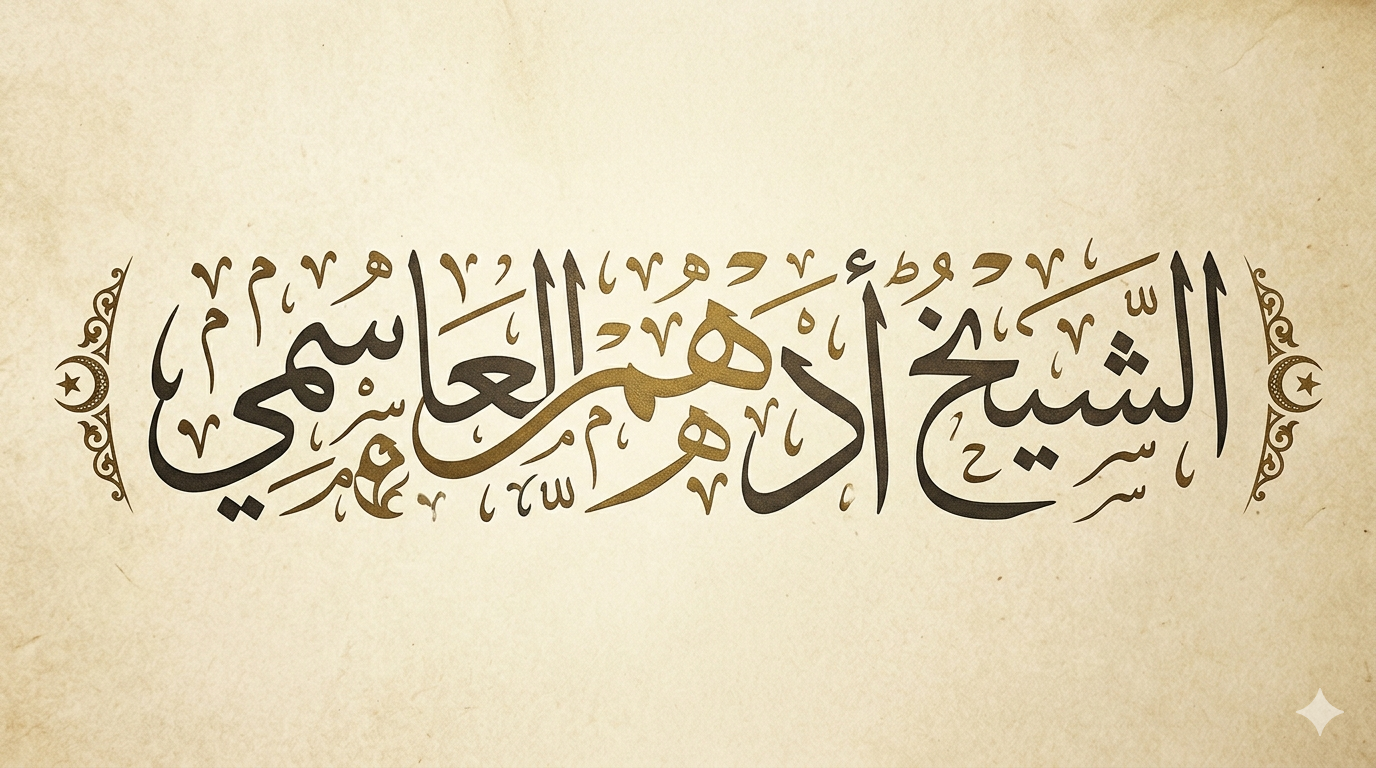 الشيخ أدهم العاسمي